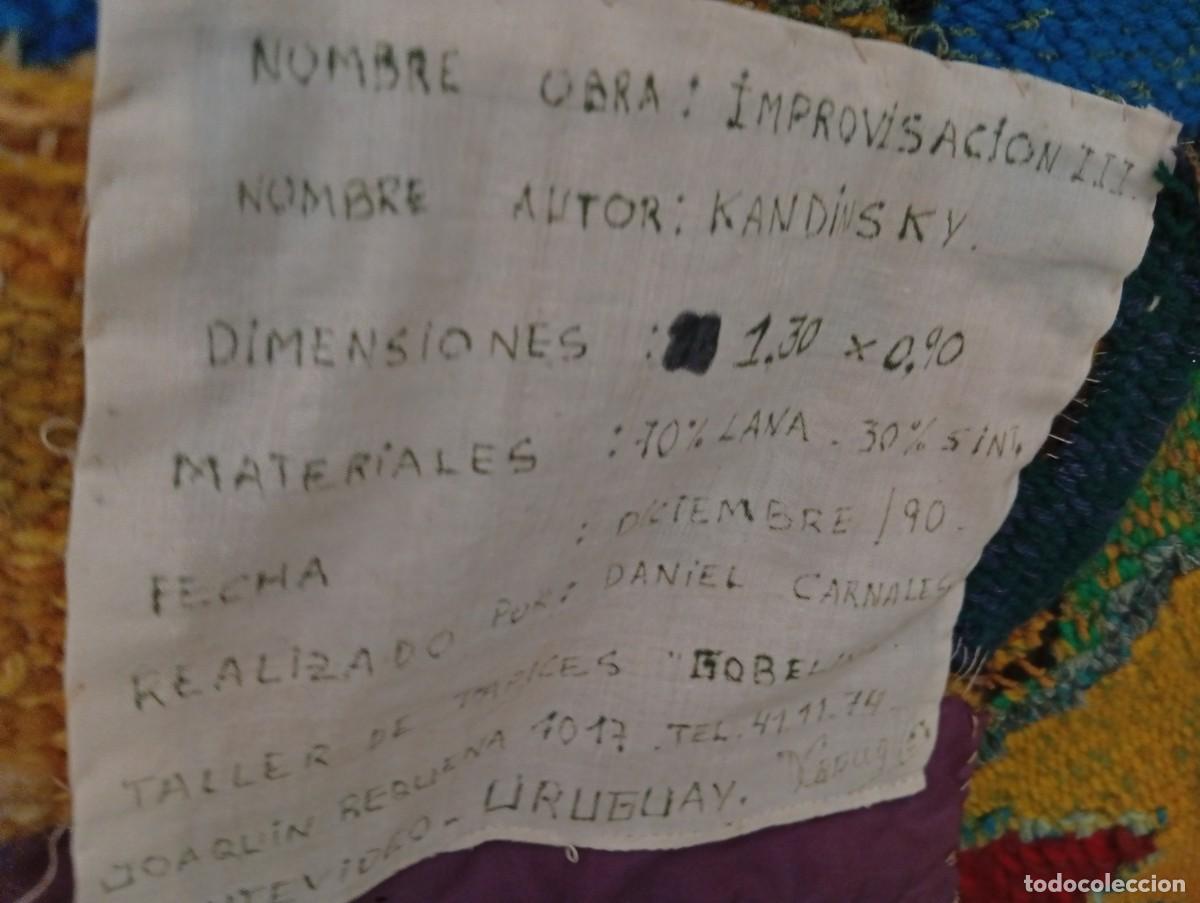 NOMBRE OBRA: IMPROVISACION III.
NOMBRE AUTOR: KANDINSKY.
DIMENSIONES : 1.30 x 0,90
MATERIALES : 70% LANA - 30% SINT.
FECHA : DICIEMBRE /90-
REALIZADO POR: DANIEL CARNALES
TALLER DE TAPICES
JOAQUIN REQUENA 1017. TEL. 41.11.74.
- URUGUAY.
todocoleccion